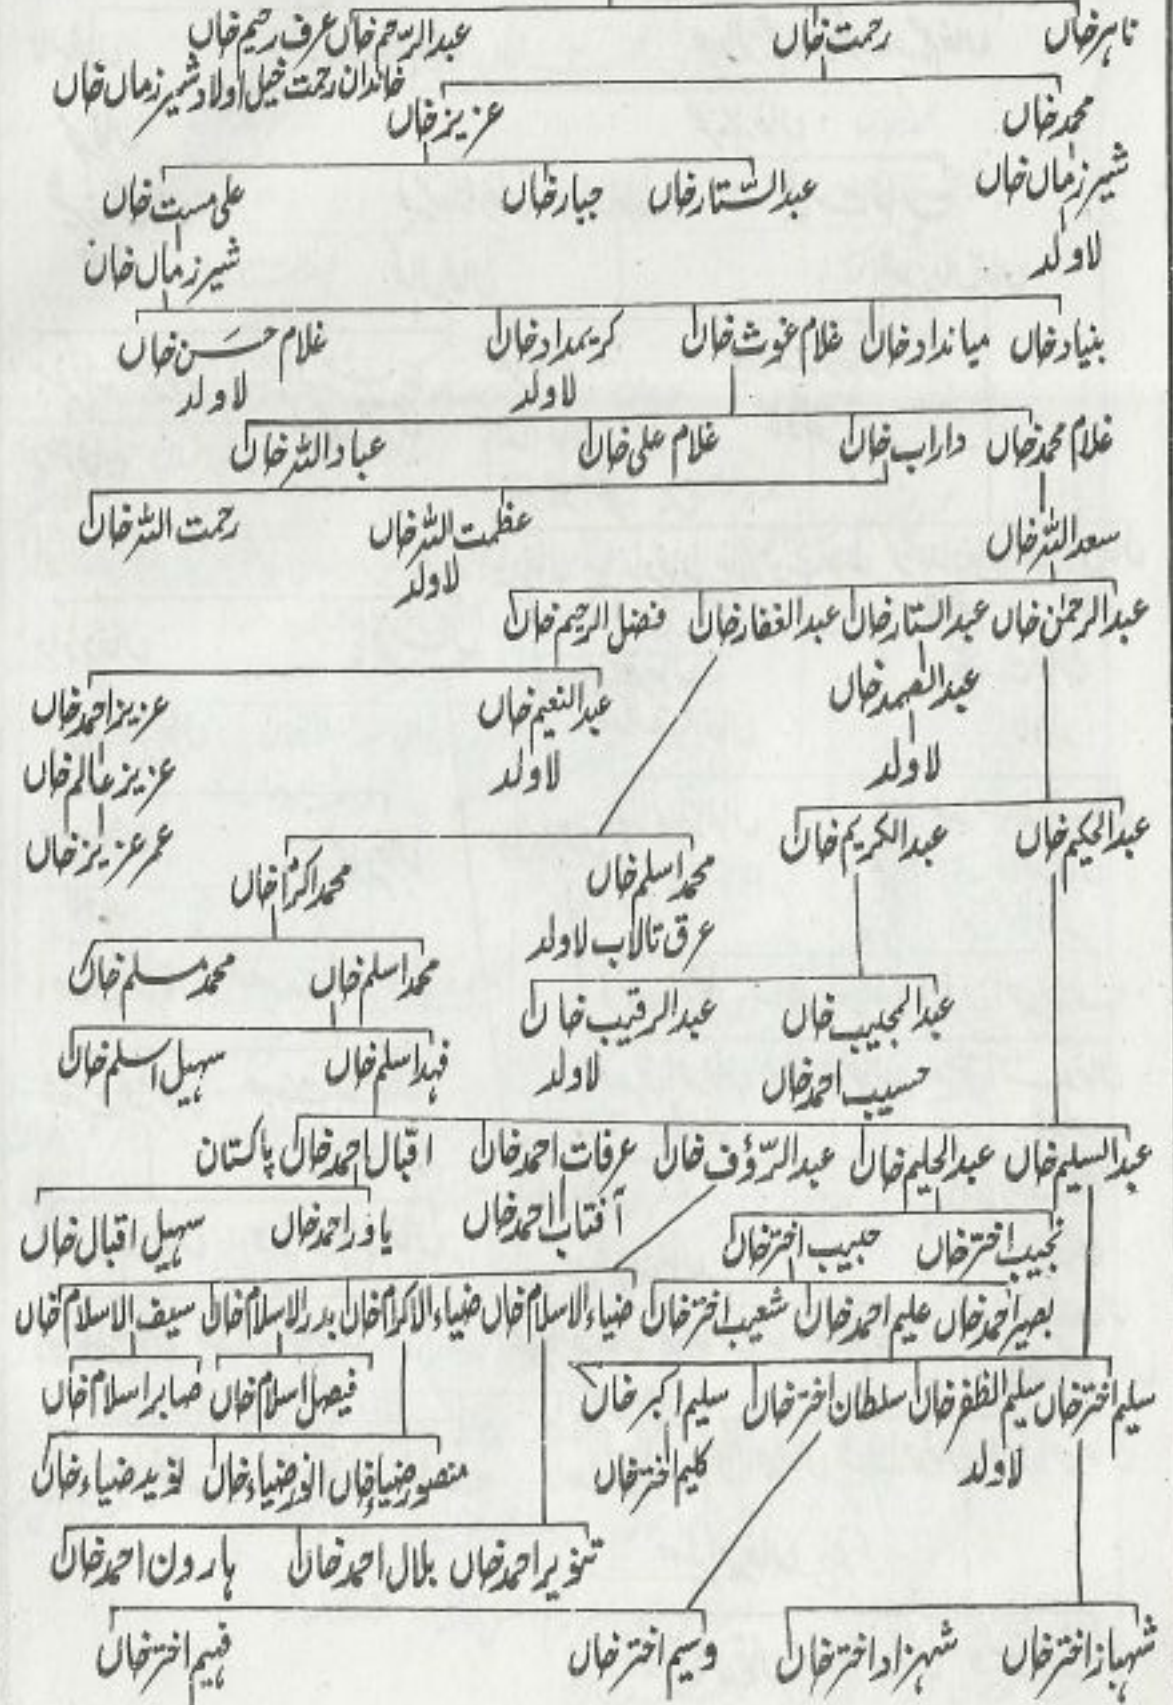 ناہر خاں رحمت خاں عبدالرحیم خاں عرف رحیم خاں
خاندان رحمت خیل اولاد شمیر زماں خاں
محمد خاں عزیز خاں
شیر زماں خاں عبدالستّار خاں جبار خاں علی مست خاں
لاولد شیر زماں خان
بنیاد خاں میانداد خاں غلام غوث خاں کریمداد خاں غلام حسَن خاں
لاولد لاولد
غلام محمد خاں داراب خاں غلام علی خاں عباداللہ خاں
سعداللہ خاں عظمت اللہ خاں رحمت اللہ خاں
لاولد
عبدالرحمٰن خاں عبدالستار خاں عبدالغفار خاں فضل الرحیم خاں
عبدالصمد خاں عبدالنعیم خاں عزیز احمد خاں
لاولد لاولد عزیز عالم خاں
عبدالحکیم خاں عبدالکریم خاں عمر عزیز خاں
محمد اسلم خاں محمد اکرم خاں
عرق تالاب لاولد
محمد اسلم خاں محمد مسلم خاں
عبدالمجیب خاں عبدالرقیب خاں
فہد اسلم خاں سہیل اسلم خاں
حسیب احمد خاں لاولد
عبدالسلیم خاں عبدالحلیم خاں عبدالرّؤف خاں عرفات احمد خاں اقبال احمد خاں پاکستان
آفتاب احمد خاں یاور احمد خاں سہیل اقبال خاں
نجیب اختر خاں حبیب اختر خاں
بصیر احمد خاں علیم احمد خاں شعیب اختر خاں ضیاء الاسلام خاں ضیاء الاکرام خاں بدر الاسلام خاں سیف الاسلام خاں
سلیم اختر خاں سلیم الظفر خاں سلطان اختر خاں سلیم اکبر خاں فیصل اسلام خاں صابر اسلام خاں
لاولد کلیم اختر خاں منصور ضیاء خاں انور ضیاء خاں نوید ضیاء خاں
تنویر احمد خاں بلال احمد خاں ہارون احمد خاں
شہباز اختر خاں شہزاد اختر خاں وسیم اختر خاں فہیم اختر خاں